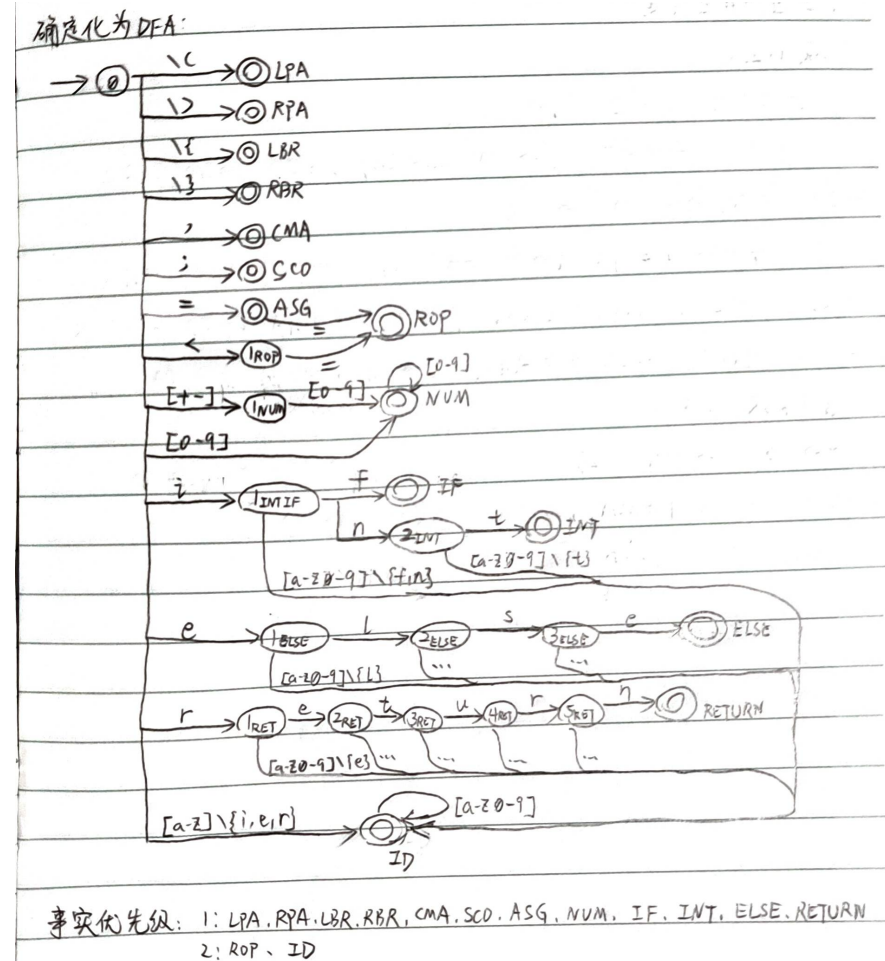 确定化为DFA:
0 \( LPA
\) RPA
\{ LBR
\} RBR
, CMA
; SCO
= ASG = ROP
< 1ROP =
[+-] 1NUM [0-9] [0-9] NUM
[0-9]
i 1INTIF f IF
n 2INT t INT
[a-z0-9]\{f,n} [a-z0-9]\{t}
e 1ELSE l 2ELSE s 3ELSE e ELSE
[a-z0-9]\{l} ... ...
r 1RET e 2RET t 3RET u 4RET r 5RET n RETURN
[a-z0-9]\{e} ... ... ... ...
[a-z]\{i,e,r} [a-z0-9]
ID
事实优先级: 1: LPA、RPA、LBR、RBR、CMA、SCO、ASG、NUM、IF、INT、ELSE、RETURN
2: ROP、ID